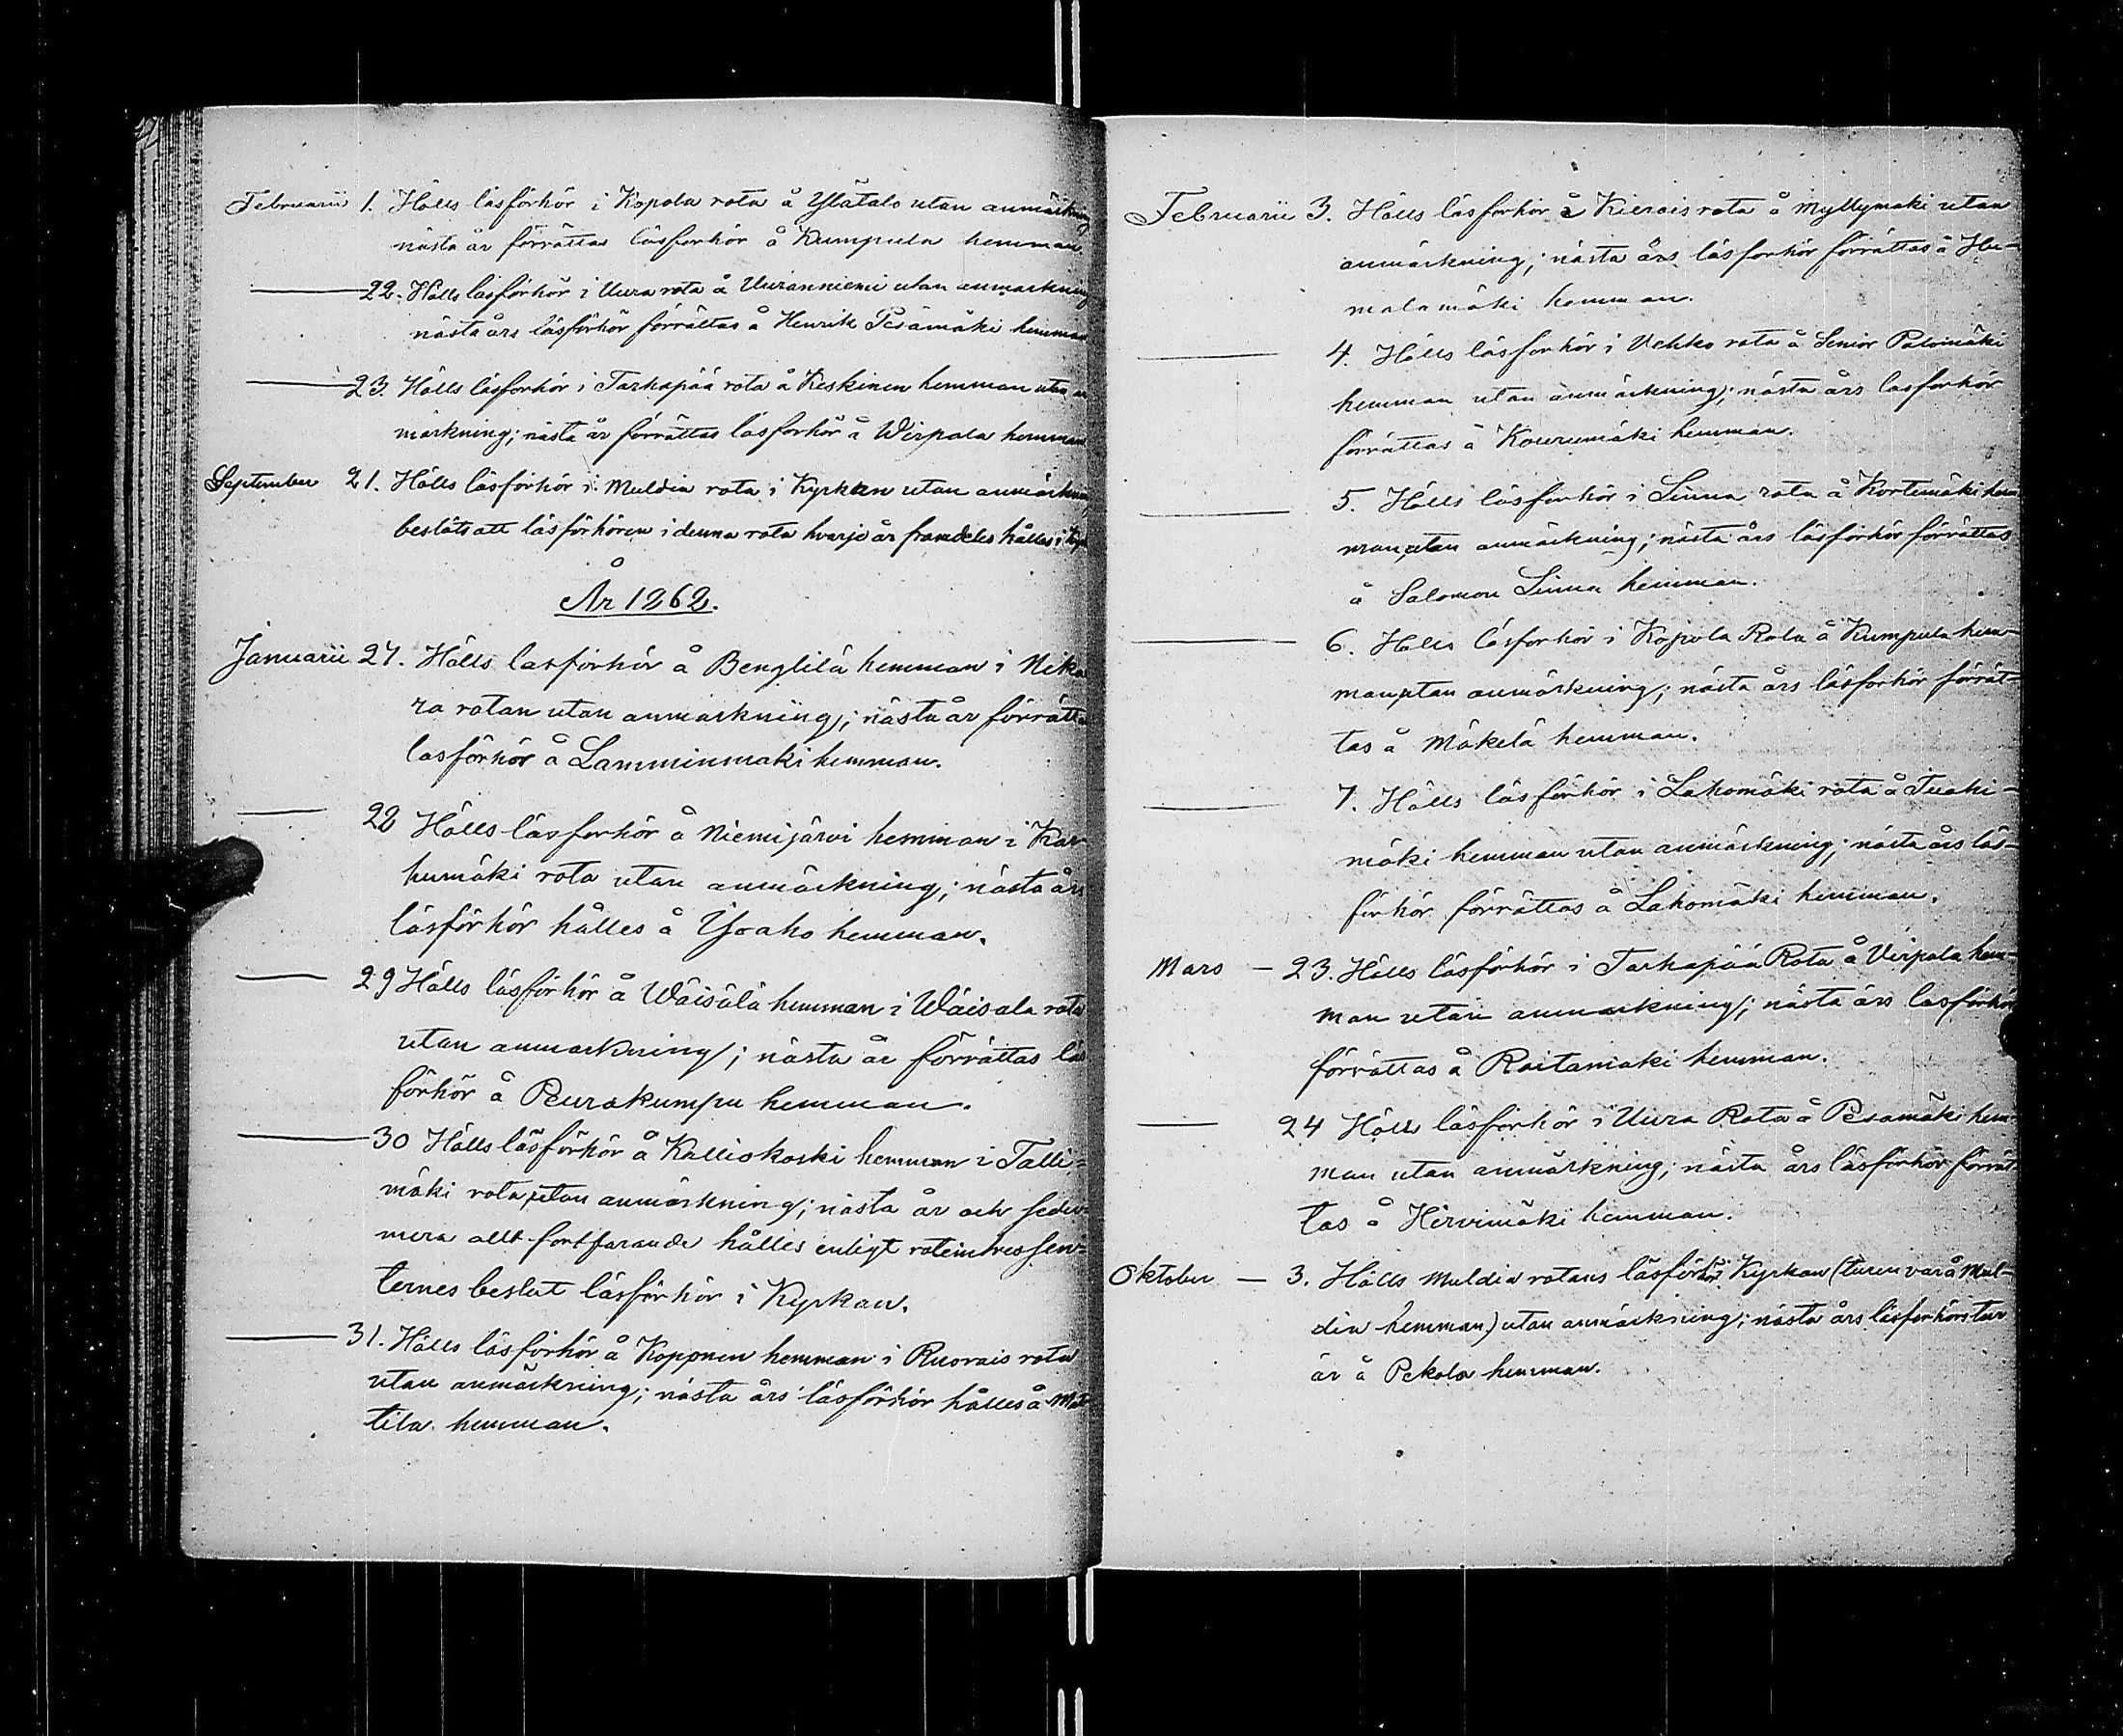 Februarii 1. Hölls läsförhör i Kopola rota å Ylätalo utan anmärkning
nästa år förrättas läsförhör å Kumpula hemman.
22. Hölls läsförhör i Uura rota å Uuranniemi utan anmärkning
nästa års läsförhör förrättas å Henrik Pesämäki hemman
23. Hölls läsförhör i Tarhapää rota å Keskinen hemman utan an
märkning; nästa år förrättas läsförhör å Wirpala hemman
September 21. Hölls läsförhör i Muldia rota i Kyrkan utan anmärkning
beslöts att läsförhören i denna rota hvarje år framdeles hålles i Kyrk
År 1262.
Januarii 27. Hölls läsförhör å Benglilä hemman i Nika
ra rotan utan anmärkning; nästa år förrätta
läsförhör å Lamminmäki hemman.
28 Hölls läsförhör å Niemijärvi hemman i Kar
humäki rota utan anmärkning; nästa års
läsförhör hålles å Ysoaho hemman.
29 Hölls läsförhör å Wäisälä hemman i Wäisala rota
utan anmärkning; nästa år förrättas läs
förhör å Peurakumpu hemman.
30 Hölls läsförhör å Kalliokoski hemman i Talli=
mäki rota, utan anmärkning; nästa år och seder=
mera allt fortfarande hålles enligt roteintressen=
ternes beslut läsförhör i Kyrkan.
31. Hölls läsförhör å Kopponen hemman i Ruorais rota
utan anmärkning; nästa års läsförhör hålles å Mat
tila hemman.
Februarii 3. Hölls läsförhör å Kierais rota å Myllymäki utan
anmärkning; nästa års läsförhör förrättas å Hu-
malamäki hemman.
4. Hölls läsförhör i Uchko rota å Senior Palomäki
hemman utan anmärkning; nästa års läsförhör
förrättas å Kourumäki hemman.
5. Hölls läsförhör i Linna rota å Kortemäki hem
man, utan anmärkning; nästa års läsförhör förrättas
å Salomon Linna hemman.
6. Hölls läsförhör i Kopola Rota å Kumpula hem-
man, utan anmärkning; nästa års läsförhör förrät-
tas å Mäkelä hemman.
7. Hölls läsförhör i Lahomäki rota å Tuohi-
mäki hemman utan anmärkning; nästa års läs-
förhör förrättas å Lahomäki hemman.
Mars - 23. Hölls läsförhör i Tarhapää Rota å Virpala hem-
man utan anmärkning; nästa års läsförhör
förrättas å Raitamäki hemman.
24 Hölls läsförhör i Uura Rota å Pesämäki hem-
man utan anmärkning; nästa års läsförhör förrät-
tas å Hirvimäki hemman.
Oktober - 3. Hölls Muldia rotans läsförhör i Kyrkan (turen var å Mul-
dia hemman) utan anmärkning; nästa års läsförhörs tur
är å Pekola hemman.